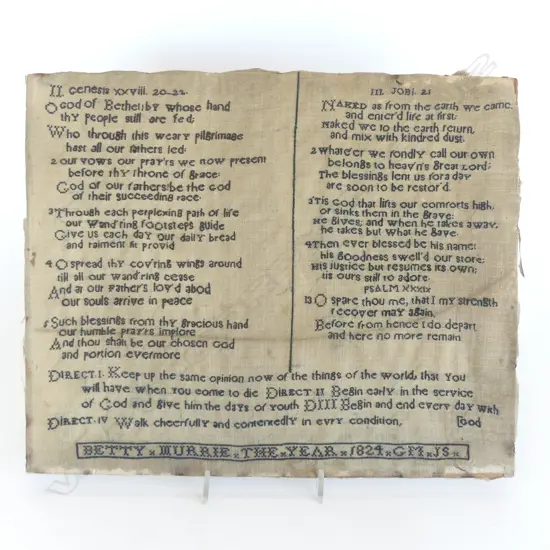 II Genesis XXVIII. 20-22
O God of Bethel: by whose hand
thy people still are fed;
Who through this weary pilgrimage
hast all our fathers led:
2 our vows our pray'rs we now present
before thy throne of grace:
God of our fathers: be the God
of their succeeding race
3 Through each perplexing path of life
our wand'ring footsteps guide
Give us each day our daily bread
and raiment fit provid
4 O spread thy cov'ring wings around
till all our wand'ring cesse
And at our Father's lov'd abod
our souls arrive in peace
5 Such blessings from thy gracious hand
our humble pray'rs implore
And thou shalt be our chosen God
and portion evermore
III JOB I. 21
Naked as from the earth we came
and enter'd life at first;
Naked we to the earth return,
and mix with kindred dust.
2 Whate'er we fondly call our own
belongs to heav'n's great Lord;
The blessings lent us for a day
are soon to be restor'd.
3 'Tis God that lifts our comforts high,
or sinks them in the grave:
He gives; and when he takes away,
he takes but what he gave
4 Then ever blessed be his name;
his goodness swell'd our store;
His justice but resumes its own;
tis ours still to adore.
PSALM XXXIX
13 O spare thou me, that I my strength
recover may again,
Before from hence I do depart
and here no more remain
DIRECT. I. Keep up the same opinion now of the things of the world, that you
will have when you come to die DIRECT II Begin early in the service
of God and give him the days of youth DIII Begin and end every day with
DIRECT. IV Walk cheerfully and contentedly in evry condition, God
BETTY × MURRIE × THE × YEAR × 1824 × GM × JS ×